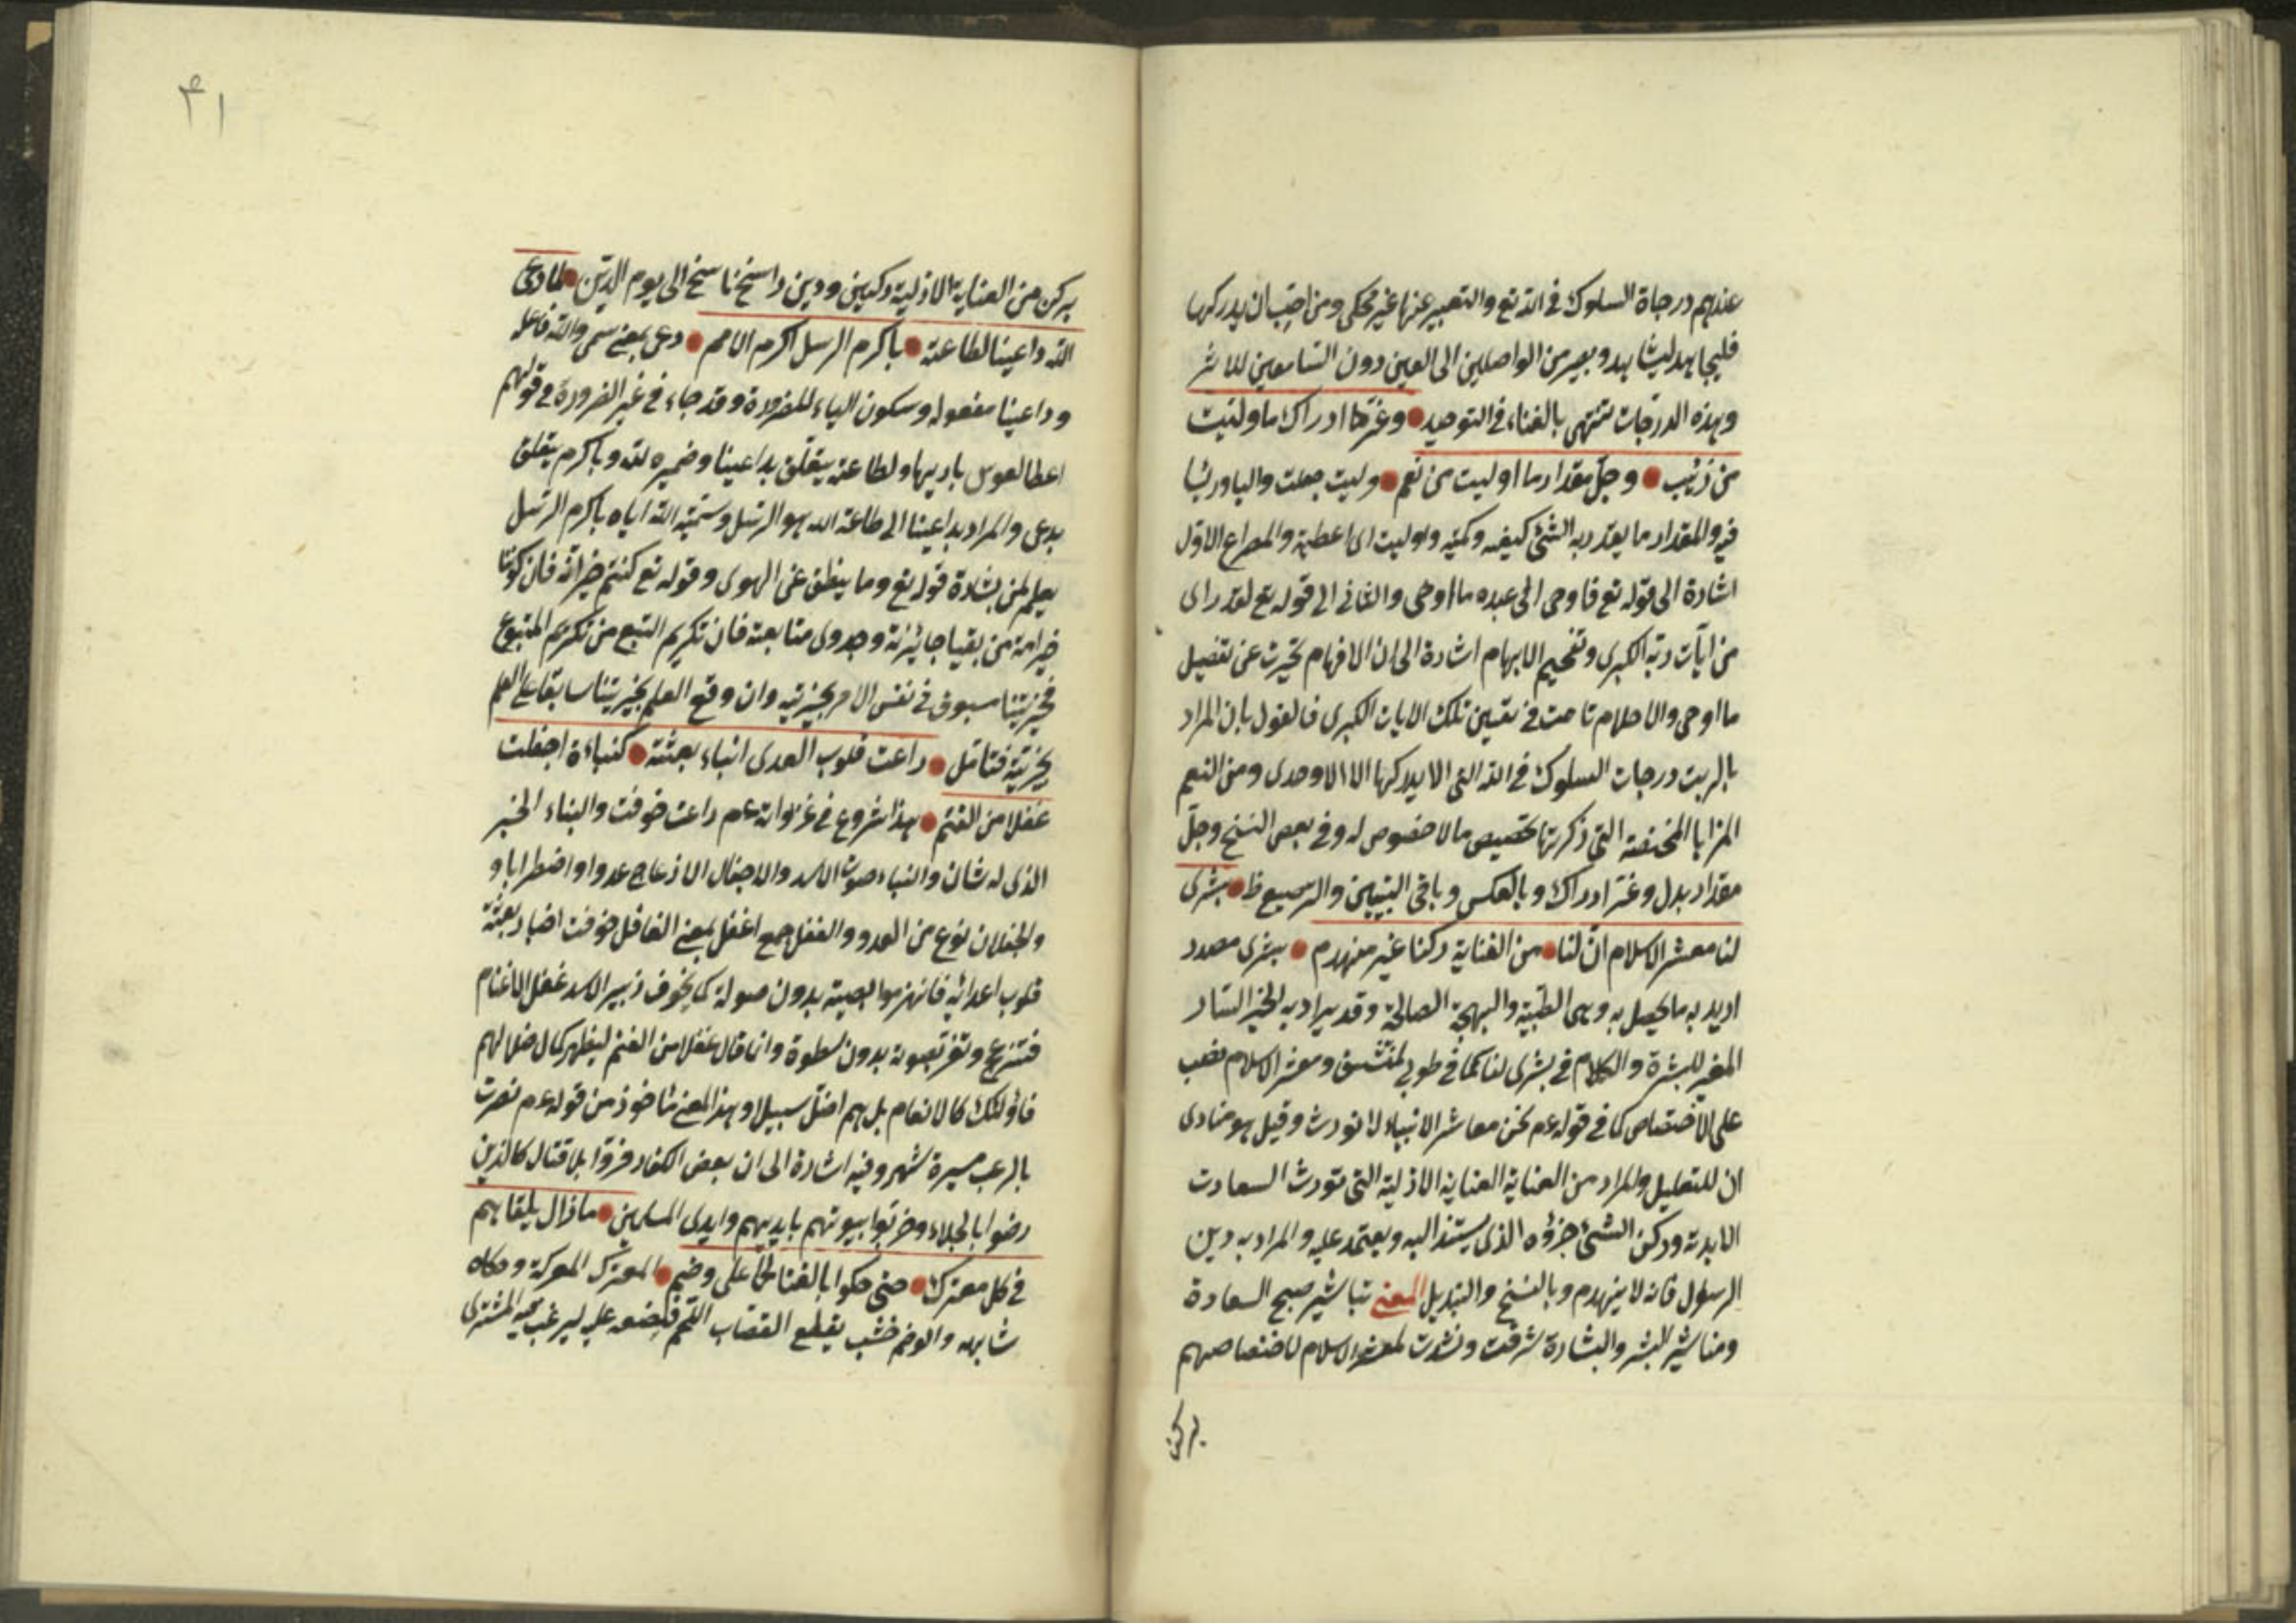 عندهم درجاة السلوك في الله تع والتعبير عنها غير محكى ومن احب ان يدركها
فليجاهد ليشاهد ويصير من الواصلين الى العين دون السامعين للاثر
وهذه الدرجات تنتهى بالفناء في التوحيد وعز ادراك ما وليت
من رتب وجل مقدار ما اوليت من نعم وليت جعلت واليا
والمقدار ما يقدر به الشئ كيفيه وكميه واوليت اى اعطيته والمصراع الاول
اشارة الى قوله تع فاوحى الى عبده ما اوحى والثانى الى قوله تع لقد راى
من آيات ربه الكبرى وتفخيم الابهام اشارة الى ان الافهام تحيرت عن تفصيل
ما اوحى والاحلام تاهت في تعيين تلك الايات الكبرى فالقول بان المراد
بالرتب درجات السلوك في الله التى لا يدركها الا الاوحدى ومن النعم
المزايا المختصة التى ذكرتها تخصيص ما لا خصوص له وفي بعض النسخ وجل
مقدار بدل وعز ادراك وبالعكس وباقى البيتين بشرى
لنا معشر الاسلام ان لنا من العناية ركنا غير منهدم بشرى مصدر
اريد به ما يحصل به وهى الطيبة والبهجة الصالحة وقد يراد به الخبر السار
المغير للبشرة والكلام في بشرى لنا كما في طوبى لمنتشق ومعشر الاسلام نصب
على الاختصاص كما في قوله عم نحن معاشر الانبياء لا نورث وقيل هو منادى
ان للتعليل والمراد من العناية العناية الازلية التى تورث السعادت
الابدية وركن الشئ جزؤه الذى يستند اليه ويعتمد عليه والمراد به دين
الرسول فانه لا ينهدم وبالنسخ والتبديل المعنى تباشير صبح السعادة
ومناشير البشر والبشارة شرقت ونشرت لمعشر الاسلام لاختصاصهم
بركن
٤١
بركن من العناية الازلية ركين ودين راسخ ناسخ الى يوم الدين لما دعى
الله داعينا لطاعته باكرم الرسل كنا اكرم الامم دعى بمعنى سمى والله فاعله
وداعينا مفعوله وسكون الياء للضرورة وقد جاء في غير الضرورة في قولهم
اعط القوس باريها ولطاعته يتعلق بداعينا وضميره لله وباكرم يتعلق
بدعى والمراد بداعينا الى طاعة الله هو الرسل وتسميته الله اياه باكرم الرسل
يعلم من اشارة قوله تع وما ينطق عن الهوى وقوله تع كنتم خير امة فان كوننا
خير امة من وجدوى متابعته فان تكريم التبع من تكريم المتبوع
فخيريتنا مسبوق في نفس الامر بخيريته وان وقع العلم بخيريتنا سابقا على العلم
بخيريته فتامل راعت قلوب العدى انباء بعثته كنباءة اجفلت
غفلا من الغنم هذا شروع في غزواته عم راعت خوفت والنباء الخبر
الذى له شان والنباءه صوت الاسد والاجفال الازعاج عدوا واضطرابا و
والجفلان نوع من العدو والغفل جمع اغفل بمعنى الغافل خوفت اخبار بعثته
قلوب اعدائه فانهزموا بدون صولة كما يخوف زبير الاسد غفل الاغنام
فتنزعج وتفر بصوته بدون سطوة وانما قال غفلا من الغنم ليظهر كمال ضلالهم
فاولئك كالانعام بل هم اضل سبيلا وهذا المعنى ماخوذ من قوله عم نصرت
بالرعب مسيرة شهر وفيه اشارة الى ان بعض الكفار فروا بلا قتال كالذين
رضوا بالجلاء وخربوا بيوتهم بايديهم وايدى المسلمين مازال يلقاهم
في كل معترك حتى حكوا بالقنا لحما على وضم المعترك المعركة وحكاه
شابهه والوضم خشب يقطع القصاب اللحم فيضعه عليه ليرغب فيه المشترى